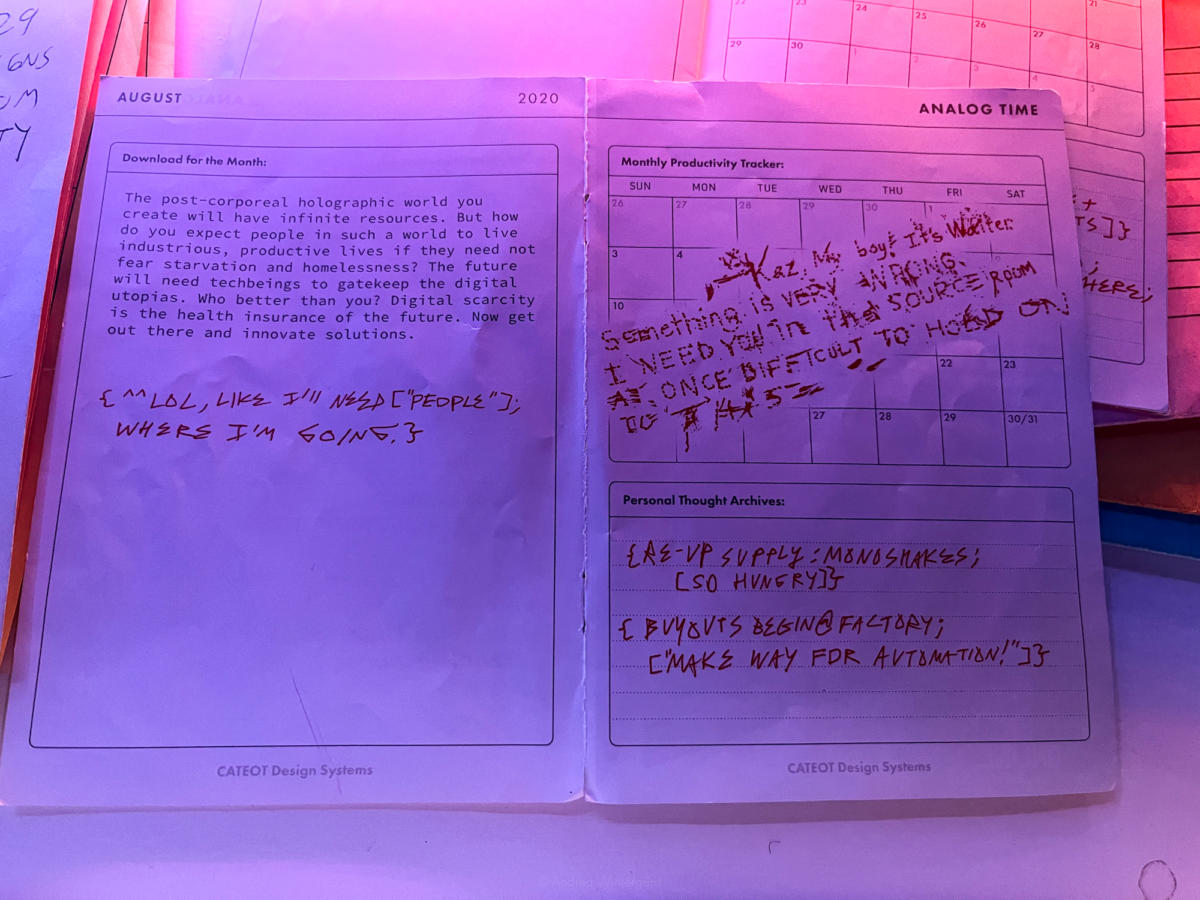 29
IGNS
OM
TY
AUGUST
2020
Download for the Month:
The post-corporeal holographic world you
create will have infinite resources. But how
do you expect people in such a world to live
industrious, productive lives if they need not
fear starvation and homelessness? The future
will need techbeings to gatekeep the digital
utopias. Who better than you? Digital scarcity
is the health insurance of the future. Now get
out there and innovate solutions.
{^^LOL, LIKE I'll NEED ["PEOPLE"];
WHERE I'M GOING.}
CATEOT Design Systems
ANALOG TIME
Monthly Productivity Tracker:
SUN MON TUE WED THU FRI SAT
26 27 28 29 30 1
3 4
10
22 23
27 28 29 30/31
Kaz, My boy! It's Walter.
Something is VERY WRONG.
I NEED YOU in the SOURCE ROOM
AT ONCE DIFFICULT TO HOLD ON
TO THIS
Personal Thought Archives:
{RE-UP SUPPLY: MONOSHAKES;
[SO HUNGRY]}
{BUYOUTS BEGIN@FACTORY;
["MAKE WAY FOR AUTOMATION!"]}
CATEOT Design Systems
21
22 23 24 25 26 27 28
29 30 1 2 3 4 5
+
TS]}
;
HERE;